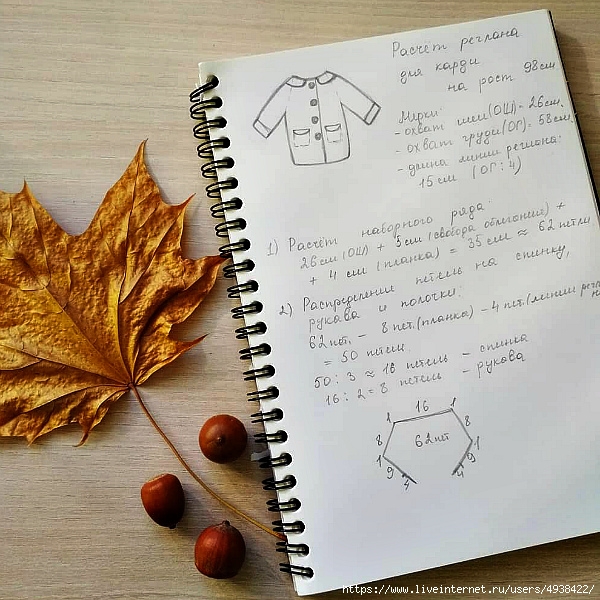 Расчёт реглана
для карди
на рост 98см
Мерки:
- охват шеи(ОШ)-26см,
- охват груди(ОГ)-58см
- длина линии реглана:
15см (ОГ:4)
1) Расчёт наборного ряда:
26см(ОШ) + 5см(свобода облегания) +
+ 4 см (планка) = 35см ≈ 62 петли
2) Распределение петель на спинку,
рукава и полочки:
62пет. - 8 пет.(планка) - 4 пет.(линии
= 50 петель
50:3 ≈ 16 петель - спинка
16:2=8 петель - рукава
1 16 1
8 62пет 8
1 1
9 9
4 4
https://www.liveinternet.ru/users/4938422/